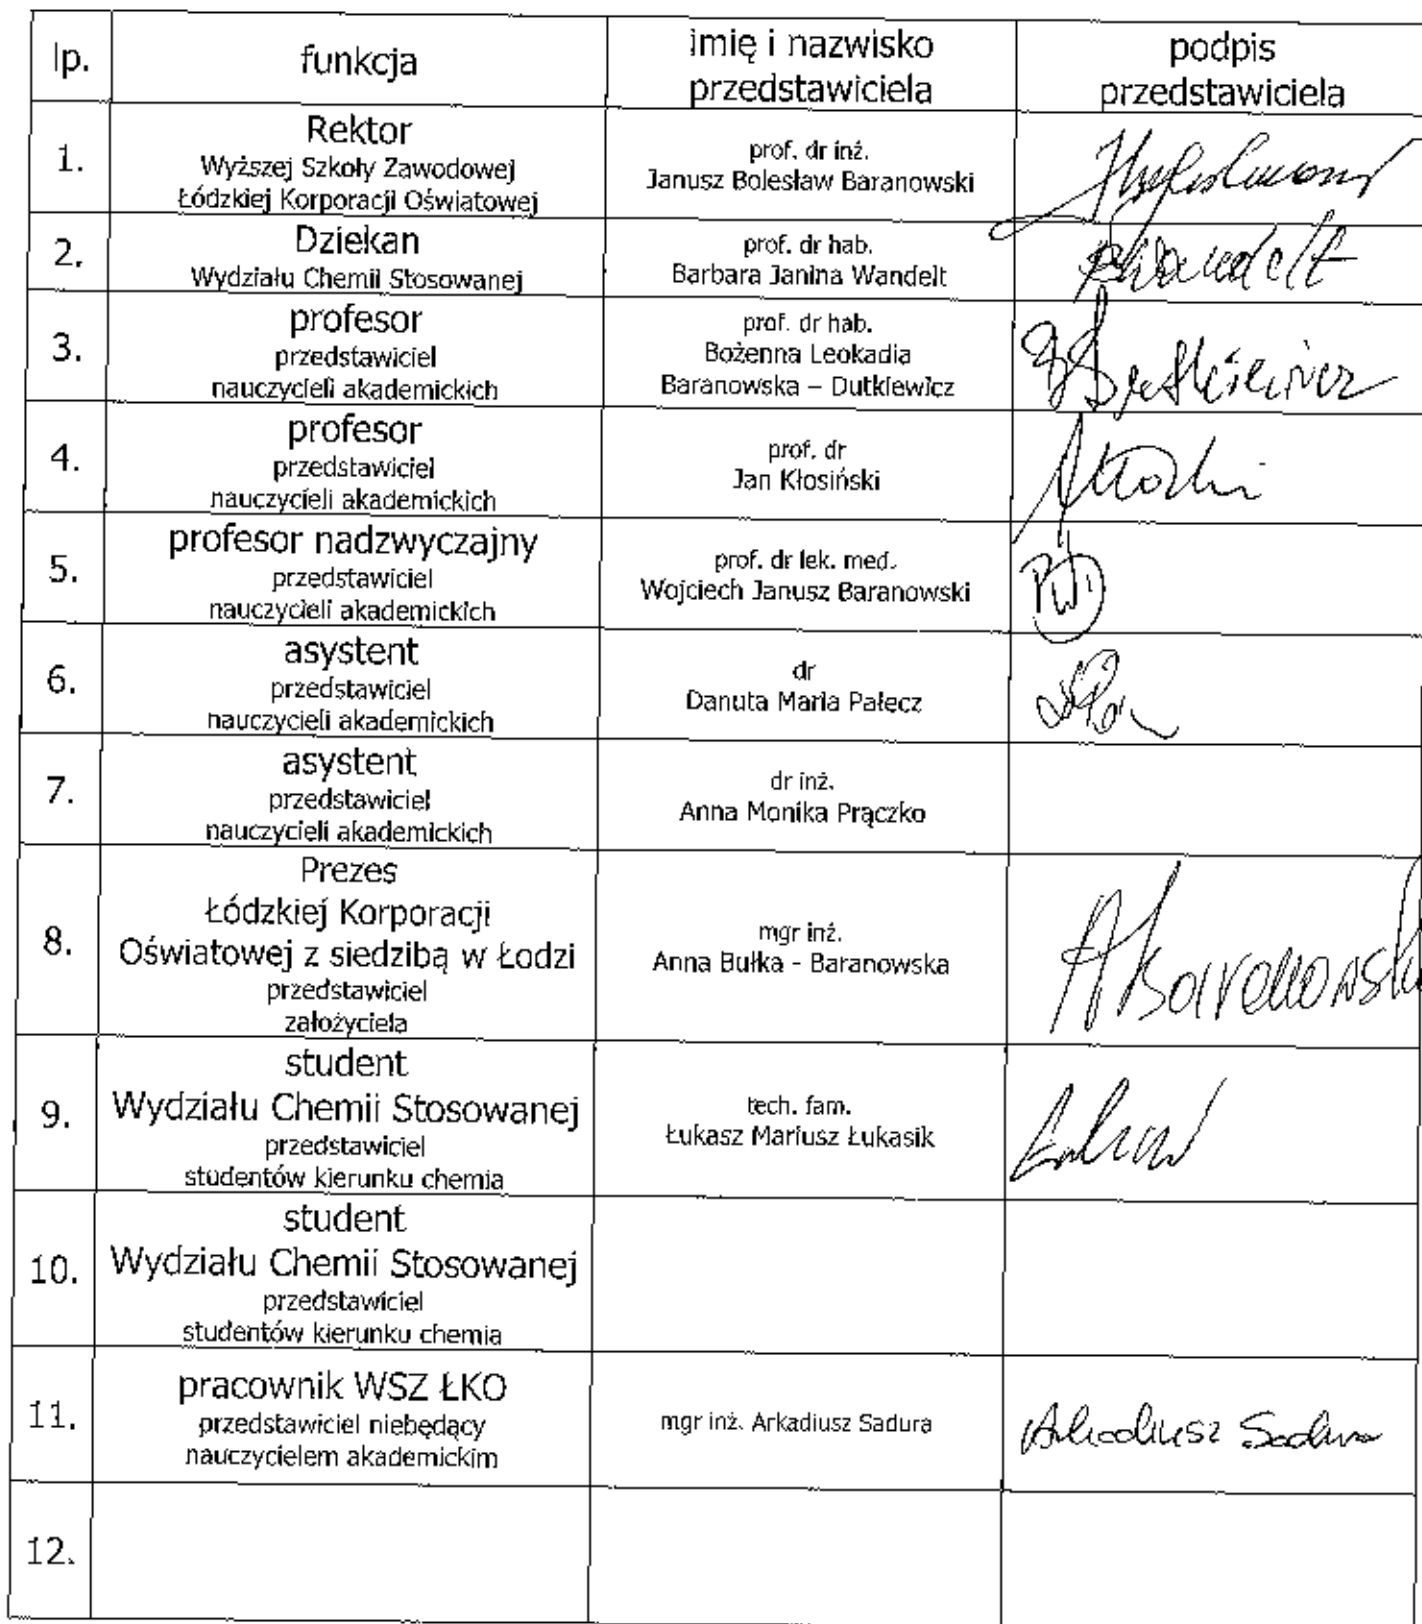 lp.
funkcja
imię i nazwisko
przedstawiciela
podpis
przedstawiciela
1.
Rektor
Wyższej Szkoły Zawodowej
Łódzkiej Korporacji Oświatowej
prof. dr inż.
Janusz Bolesław Baranowski
2.
Dziekan
Wydziału Chemii Stosowanej
prof. dr hab.
Barbara Janina Wandelt
3.
profesor
przedstawiciel
nauczycieli akademickich
prof. dr hab.
Bożenna Leokadia
Baranowska – Dutkiewicz
4.
profesor
przedstawiciel
nauczycieli akademickich
prof. dr
Jan Kłosiński
5.
profesor nadzwyczajny
przedstawiciel
nauczycieli akademickich
prof. dr lek. med.
Wojciech Janusz Baranowski
6.
asystent
przedstawiciel
nauczycieli akademickich
dr
Danuta Maria Pałecz
7.
asystent
przedstawiciel
nauczycieli akademickich
dr inż.
Anna Monika Prączko
8.
Prezes
Łódzkiej Korporacji
Oświatowej z siedzibą w Łodzi
przedstawiciel
założyciela
mgr inż.
Anna Bułka - Baranowska
9.
student
Wydziału Chemii Stosowanej
przedstawiciel
studentów kierunku chemia
tech. fam.
Łukasz Mariusz Łukasik
10.
student
Wydziału Chemii Stosowanej
przedstawiciel
studentów kierunku chemia
11.
pracownik WSZ ŁKO
przedstawiciel niebędący
nauczycielem akademickim
mgr inż. Arkadiusz Sadura
Arkadiusz Sadura
12.